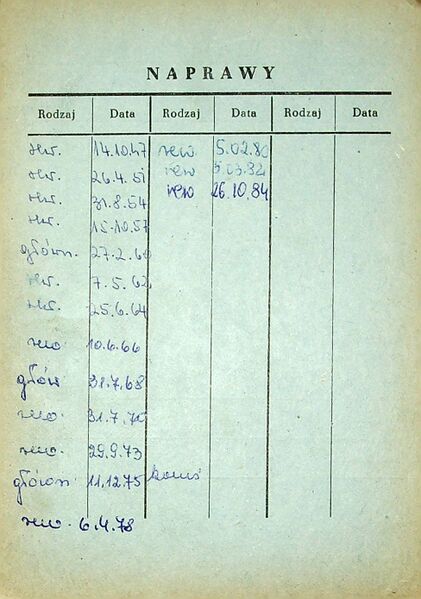 NAPRAWY
Rodzaj Data Rodzaj Data Rodzaj Data
rew. 14.10.47 rew. 5.02.80
rew. 26.4.51 rew 5.03.82
rew. 31.8.54 rew 26.10.84
rew. 15.10.57
główn. 27.2.60
rew. 7.5.62
rew. 25.6.64
rew 10.6.66
głów 31.7.68
rew. 31.7.70
rew. 29.9.73
główn. 11.12.75
rew. 6.4.78